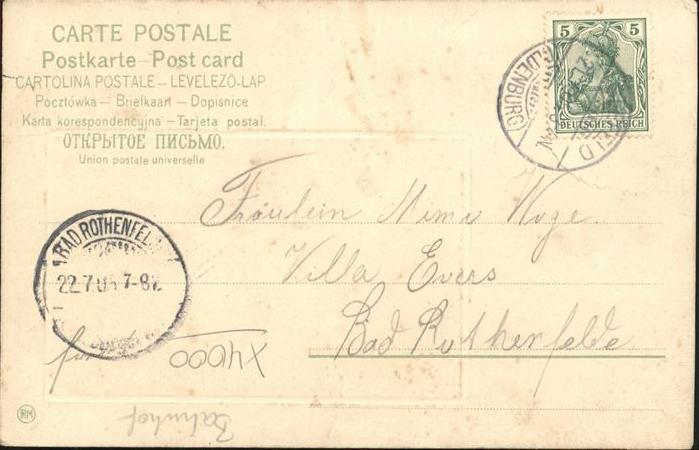 CARTE POSTALE
Postkarte — Post card
CARTOLINA POSTALE — LEVELEZŐ-LAP
Pocztówka — Briefkaart — Dopisnice
Karta korespondencyjna — Tarjeta postal.
ОТКРЫТОЕ ПИСЬМО.
Union postale universelle
5 5
DEUTSCHES REICH
Fräulein Mimi
Villa Evers
Bad Rothenfelde
BAD ROTHENFELDE
22.7.05 7-8V.
X4000
Bahnhof
RM